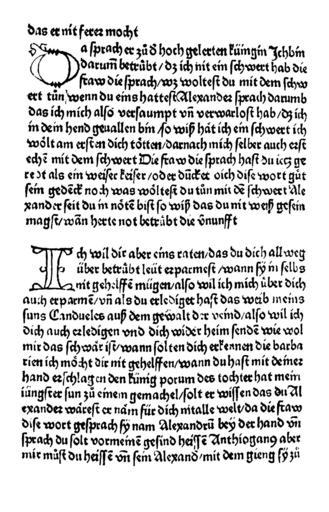 das er nit ferer mocht
DA sprach er zů d̕ hoch gelerten küngin Ichbin
darum̃ betrübt/dz ich nit ein schwert hab die
fraw die sprach/wz woltest du mit dem schw
ert tůn wenn du eins hattest Alexander sprach darumb
das ich mich also versaumpt vn̄ verwarlost hab/dz ich
in dein hend gevallen bin/so wiß hat ich ein schwert ich
wölt am ersten dich tötten/darnach mich selber auch erst
echen mit dem schwert Die fraw die sprach hast du iecz ge
redt als ein weiser keiser/oder duncket dich dise wort gůt
sein gedenck noch was wöltest du tůn mit dem schwert Ale
xander seit du in nöten bist so wiß das du nit weiß gesein
magst/wan̄ herte not betrübt die v̈nunfft
ICh wil dir aber eins raten/das du dich all weg
über betrübt leüt erparmest/wann sy in selbs
nit gehelffen mügen/also wil ich mich über dich
auch erparmen/vn̄ als du erlediget hast das weib meins
suns Candueles auß dem gewalt der veind/also wil ich
dich auch erledigen vnd dich wider heim senden wie wol
mir das schwär ist/wann solten dich erkennen die barba
rien ich möcht dir nit gehelffen/wann du hast mit deiner
hand erschlagen den künig porum des tochter hat mein
iüngster sun zů einem gemachel/solt er wissen das du Al
exander wärest er näm für dich nit alle welt/da die fraw
dise wort gesprach sy nam Alexandrū bey der hand vn̄
sprach du solt vor meinem gesind heissen Anthiogon9 aber
mir můst du heissen vn̄ sein Alexand̕/mit dem gieng sy zů